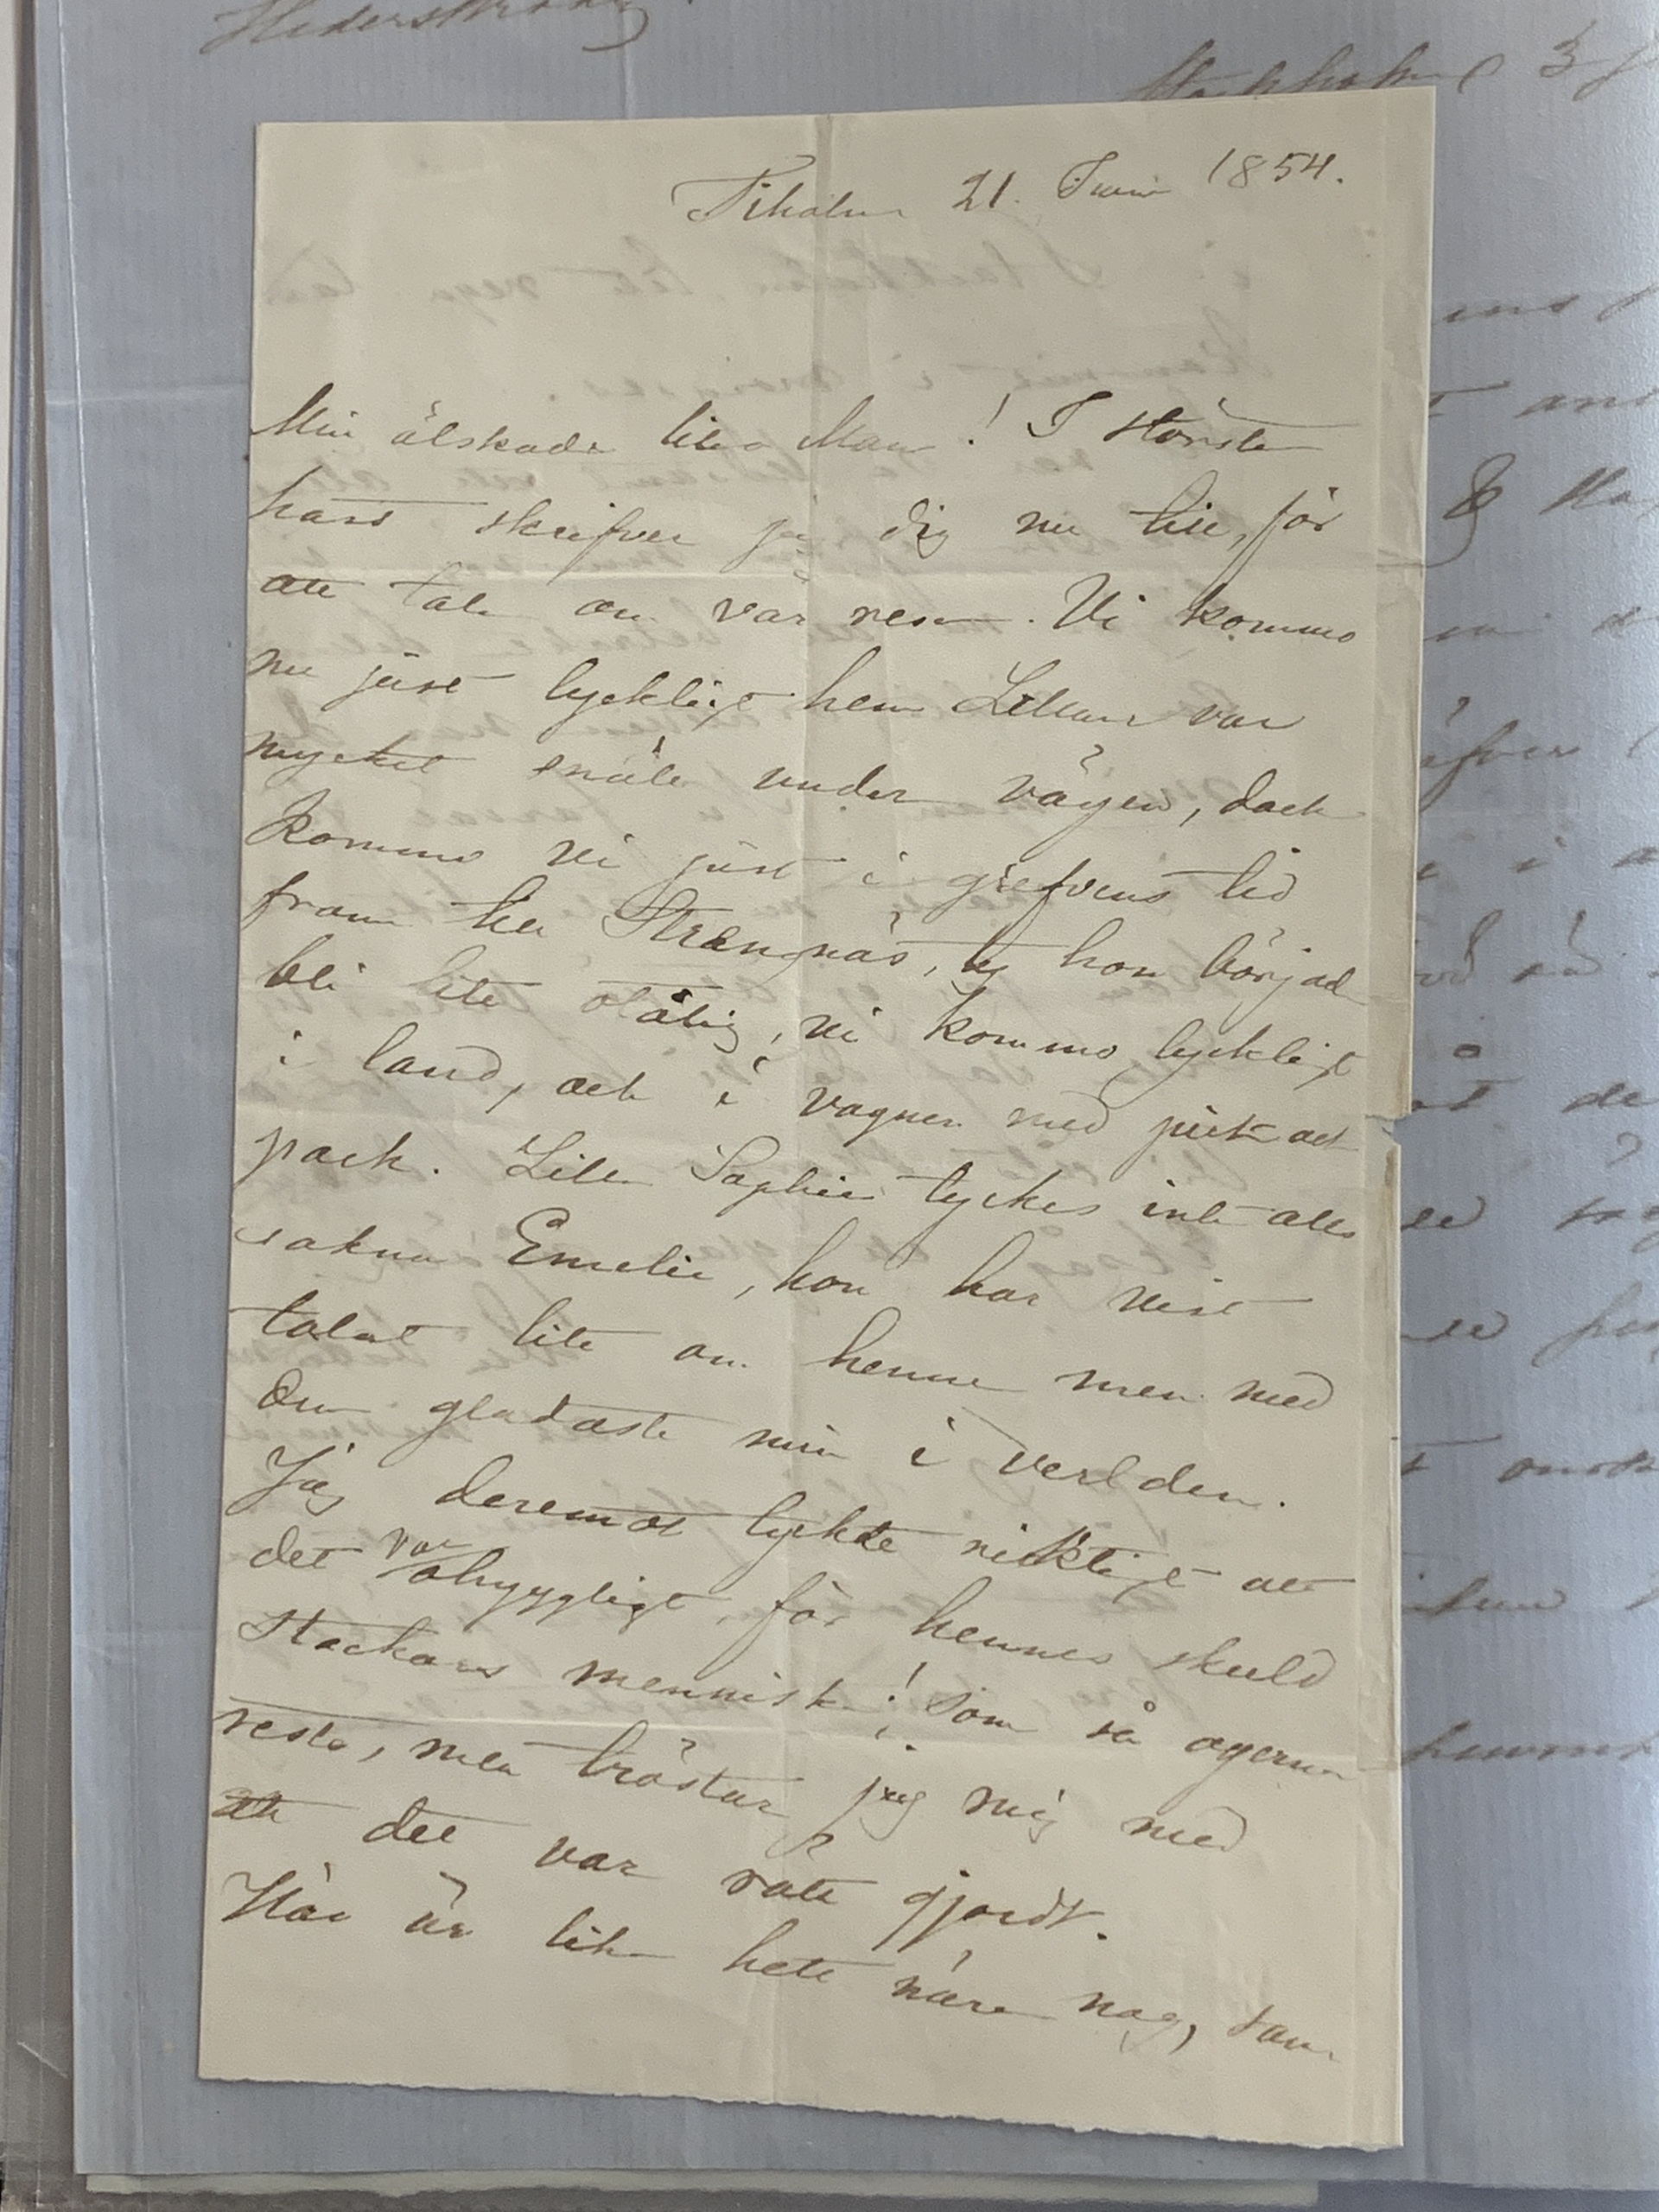 Stockholm 3
Fiholm 21. Juni 1854.
Min älskade lilla Man! I största
hast skrifver jag dig nu till, för
att tala om vår resa. Vi kommo
nu just lyckligt hem Lillan var
mycket snäll under vägen, dock
kommo vi just i grefvens tid
fram till Strengnäs, ty hon började
bli lite otålig, vi kommo lyckligt
i land, och i vagnen med pick och
pack. Lilla Sophie tyckes inte alls
sakna Emelie, hon har visst
talat lite om henne men med
den gladaste min i verlden.
Jag deremot tyckte ricktigt att
det var ohyggligt, för hennes skuld
stackars menniska! som så ogerna
reste, men tröstar jag mig med
att det var rätt gjordt.
Här är lika hett nära nog, som